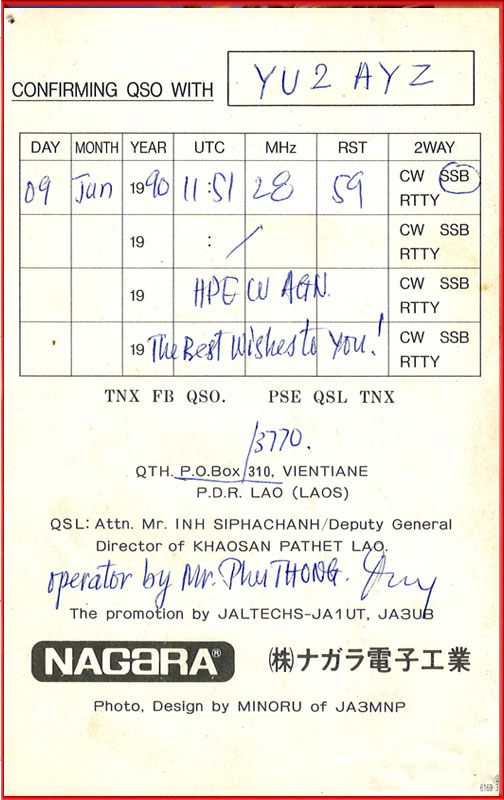 CONFIRMING QSO WITH YU2AYZ
DAY MONTH YEAR UTC MHz RST 2WAY
09 Jun 1990 11:51 28 59 CW SSB
RTTY
19 : / CW SSB
RTTY
19 HPE CU AGN. CW SSB
RTTY
19 The Best Wishes to You! CW SSB
RTTY
TNX FB QSO. PSE QSL TNX
/3770.
QTH. P.O.Box 310, VIENTIANE
P.D.R. LAO (LAOS)
QSL: Attn. Mr. INH SIPHACHANH/Deputy General
Director of KHAOSAN PATHET LAO.
operator by Mr. PhuTHONG.
The promotion by JALTECHS-JA1UT, JA3UB
NAGARA® (株)ナガラ電子工業
Photo, Design by MINORU of JA3MNP